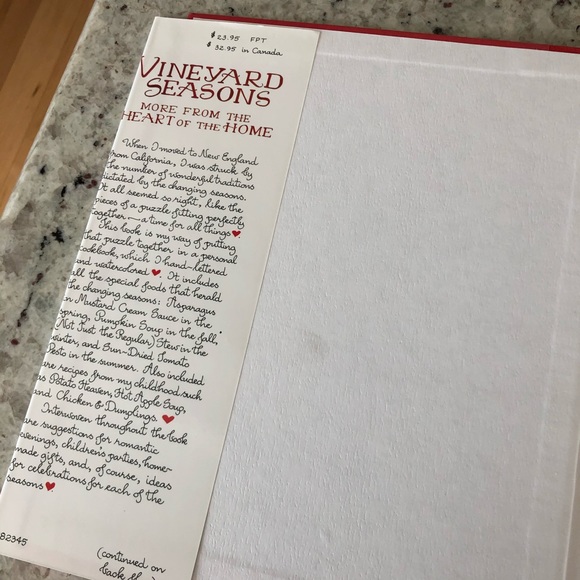 $23.95 FPT
$32.95 in Canada
VINEYARD
SEASONS
MORE FROM THE
HEART OF THE HOME
When I moved to New England
from California, I was struck by
the number of wonderful traditions
dictated by the changing seasons.
It all seemed so right, like the
pieces of a puzzle fitting perfectly
together,—a time for all things♥.
This book is my way of putting
that puzzle together in a personal
cookbook, which I hand-lettered
and watercolored♥. It includes
all the special foods that herald
the changing seasons: Asparagus
in Mustard Cream Sauce in the
spring, Pumpkin Soup in the fall,
"Not Just the Regular" Stew in the
winter, and Sun-Dried Tomato
Pesto in the summer. Also included
are recipes from my childhood such
as Potato Heaven, Hot Apple Soup,
and Chicken & Dumplings. ♥
Interwoven throughout the book
are suggestions for romantic
evenings, children's parties, home-
made gifts, and, of course, ideas
for celebrations for each of the
seasons♥.
82345
(continued on
back